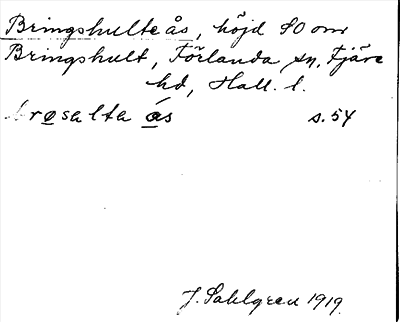 Bringshulteås, höjd SO om
Bringshult, Förlanda sn, Fjäre
hd, Hall. l.
ås s. 54
J. Sahlgren 1919.